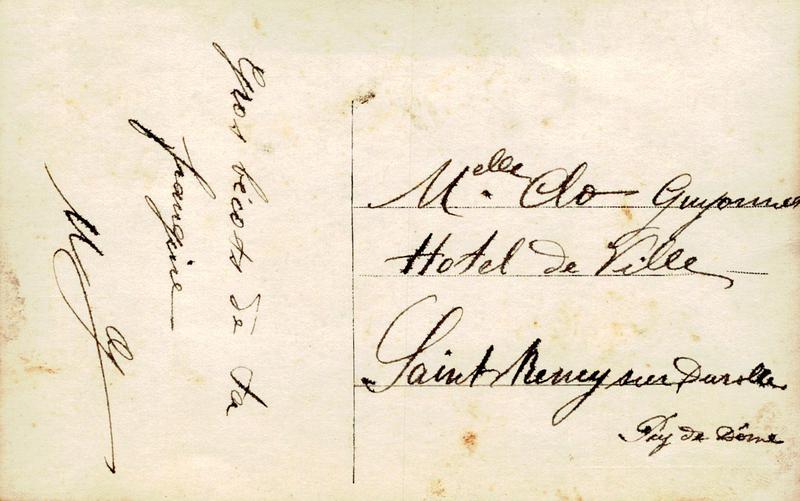 Gros bécots de ta
frangine
M
Melle Clo Guyonnet
Hotel de Ville
Saint Remy sur Durolle
Puy de Dôme